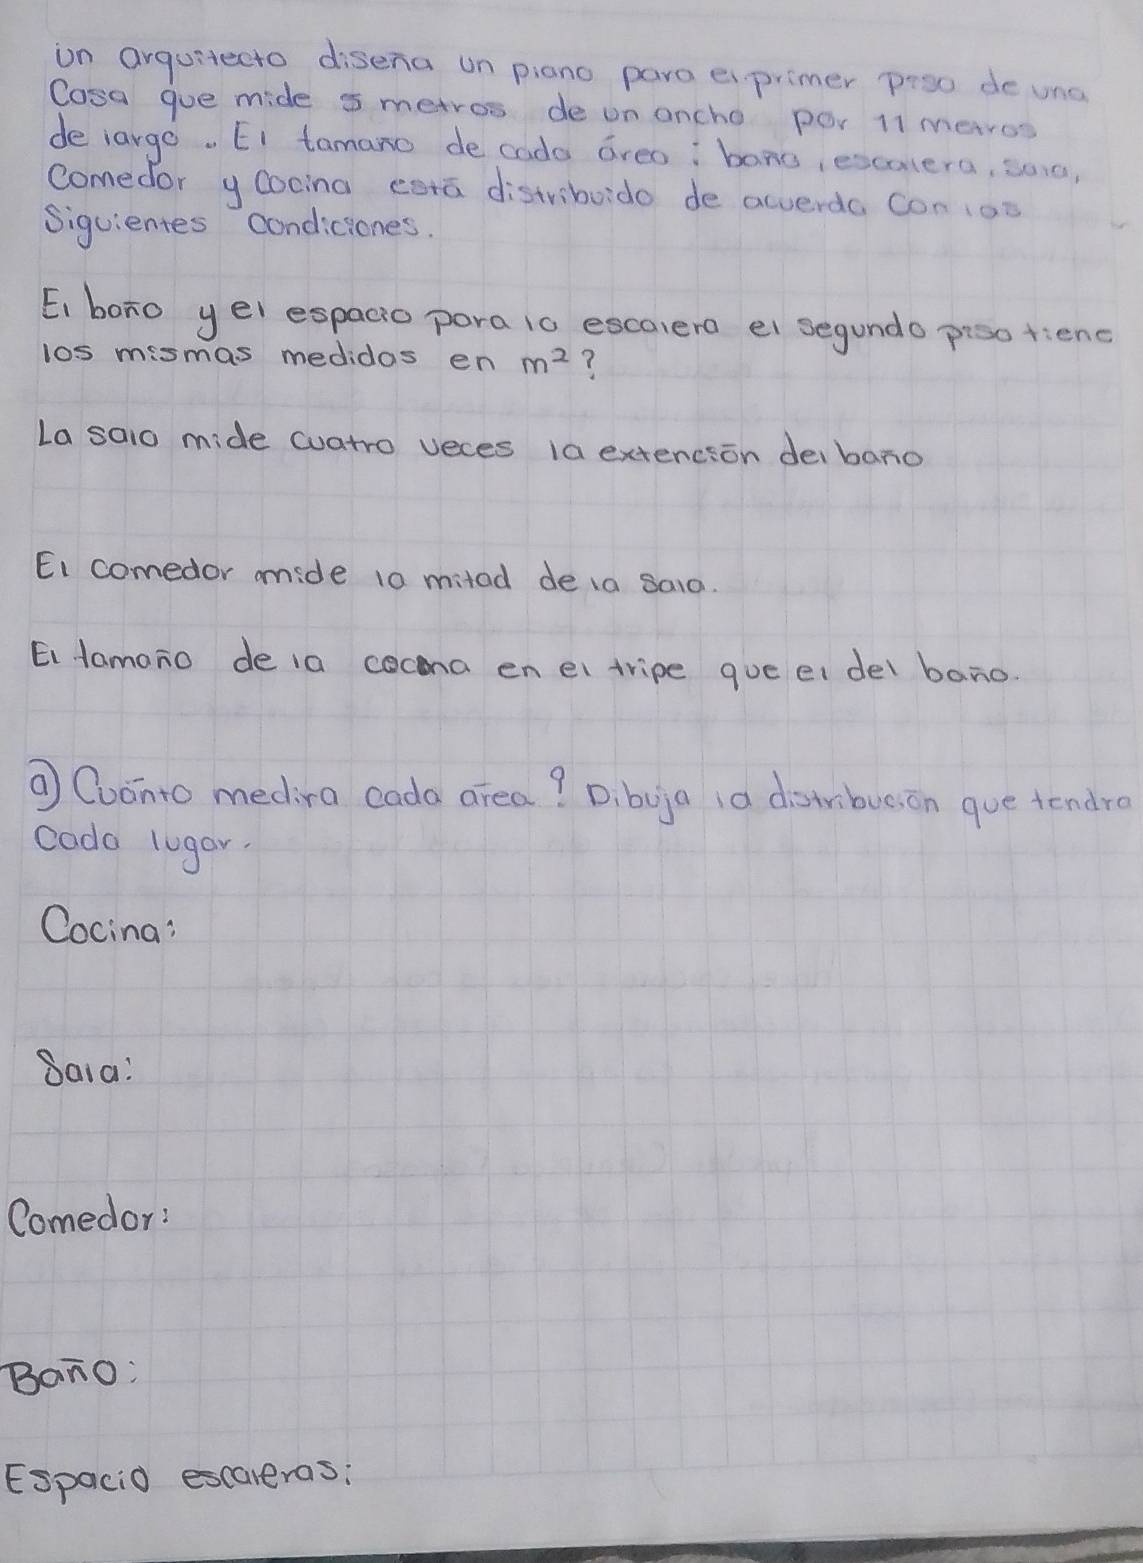 un arquitecto diseña un plano para el primer piso de una
Casa que mide 5 metros de un ancho por 11 metros
de largo. El tamaño de cada área: baño, escalera, sala,
Comedor y Cocina está distribuido de acuerdo Con las
Siguientes condiciones.
El baño y el espacio para la escalera el segundo piso tiene
los mismas medidas en m²?
La sala mide cuatro veces la extención del baño
El comedor mide la mitad de la sala.
El tamaño de la cocina en el tripe que el del baño.
a) Cuánto medira cada área? Dibuja la distribución que tendra
Cada lugar.
Cocina:
Sala:
Comedor:
Baño:
Espacio escaleras: